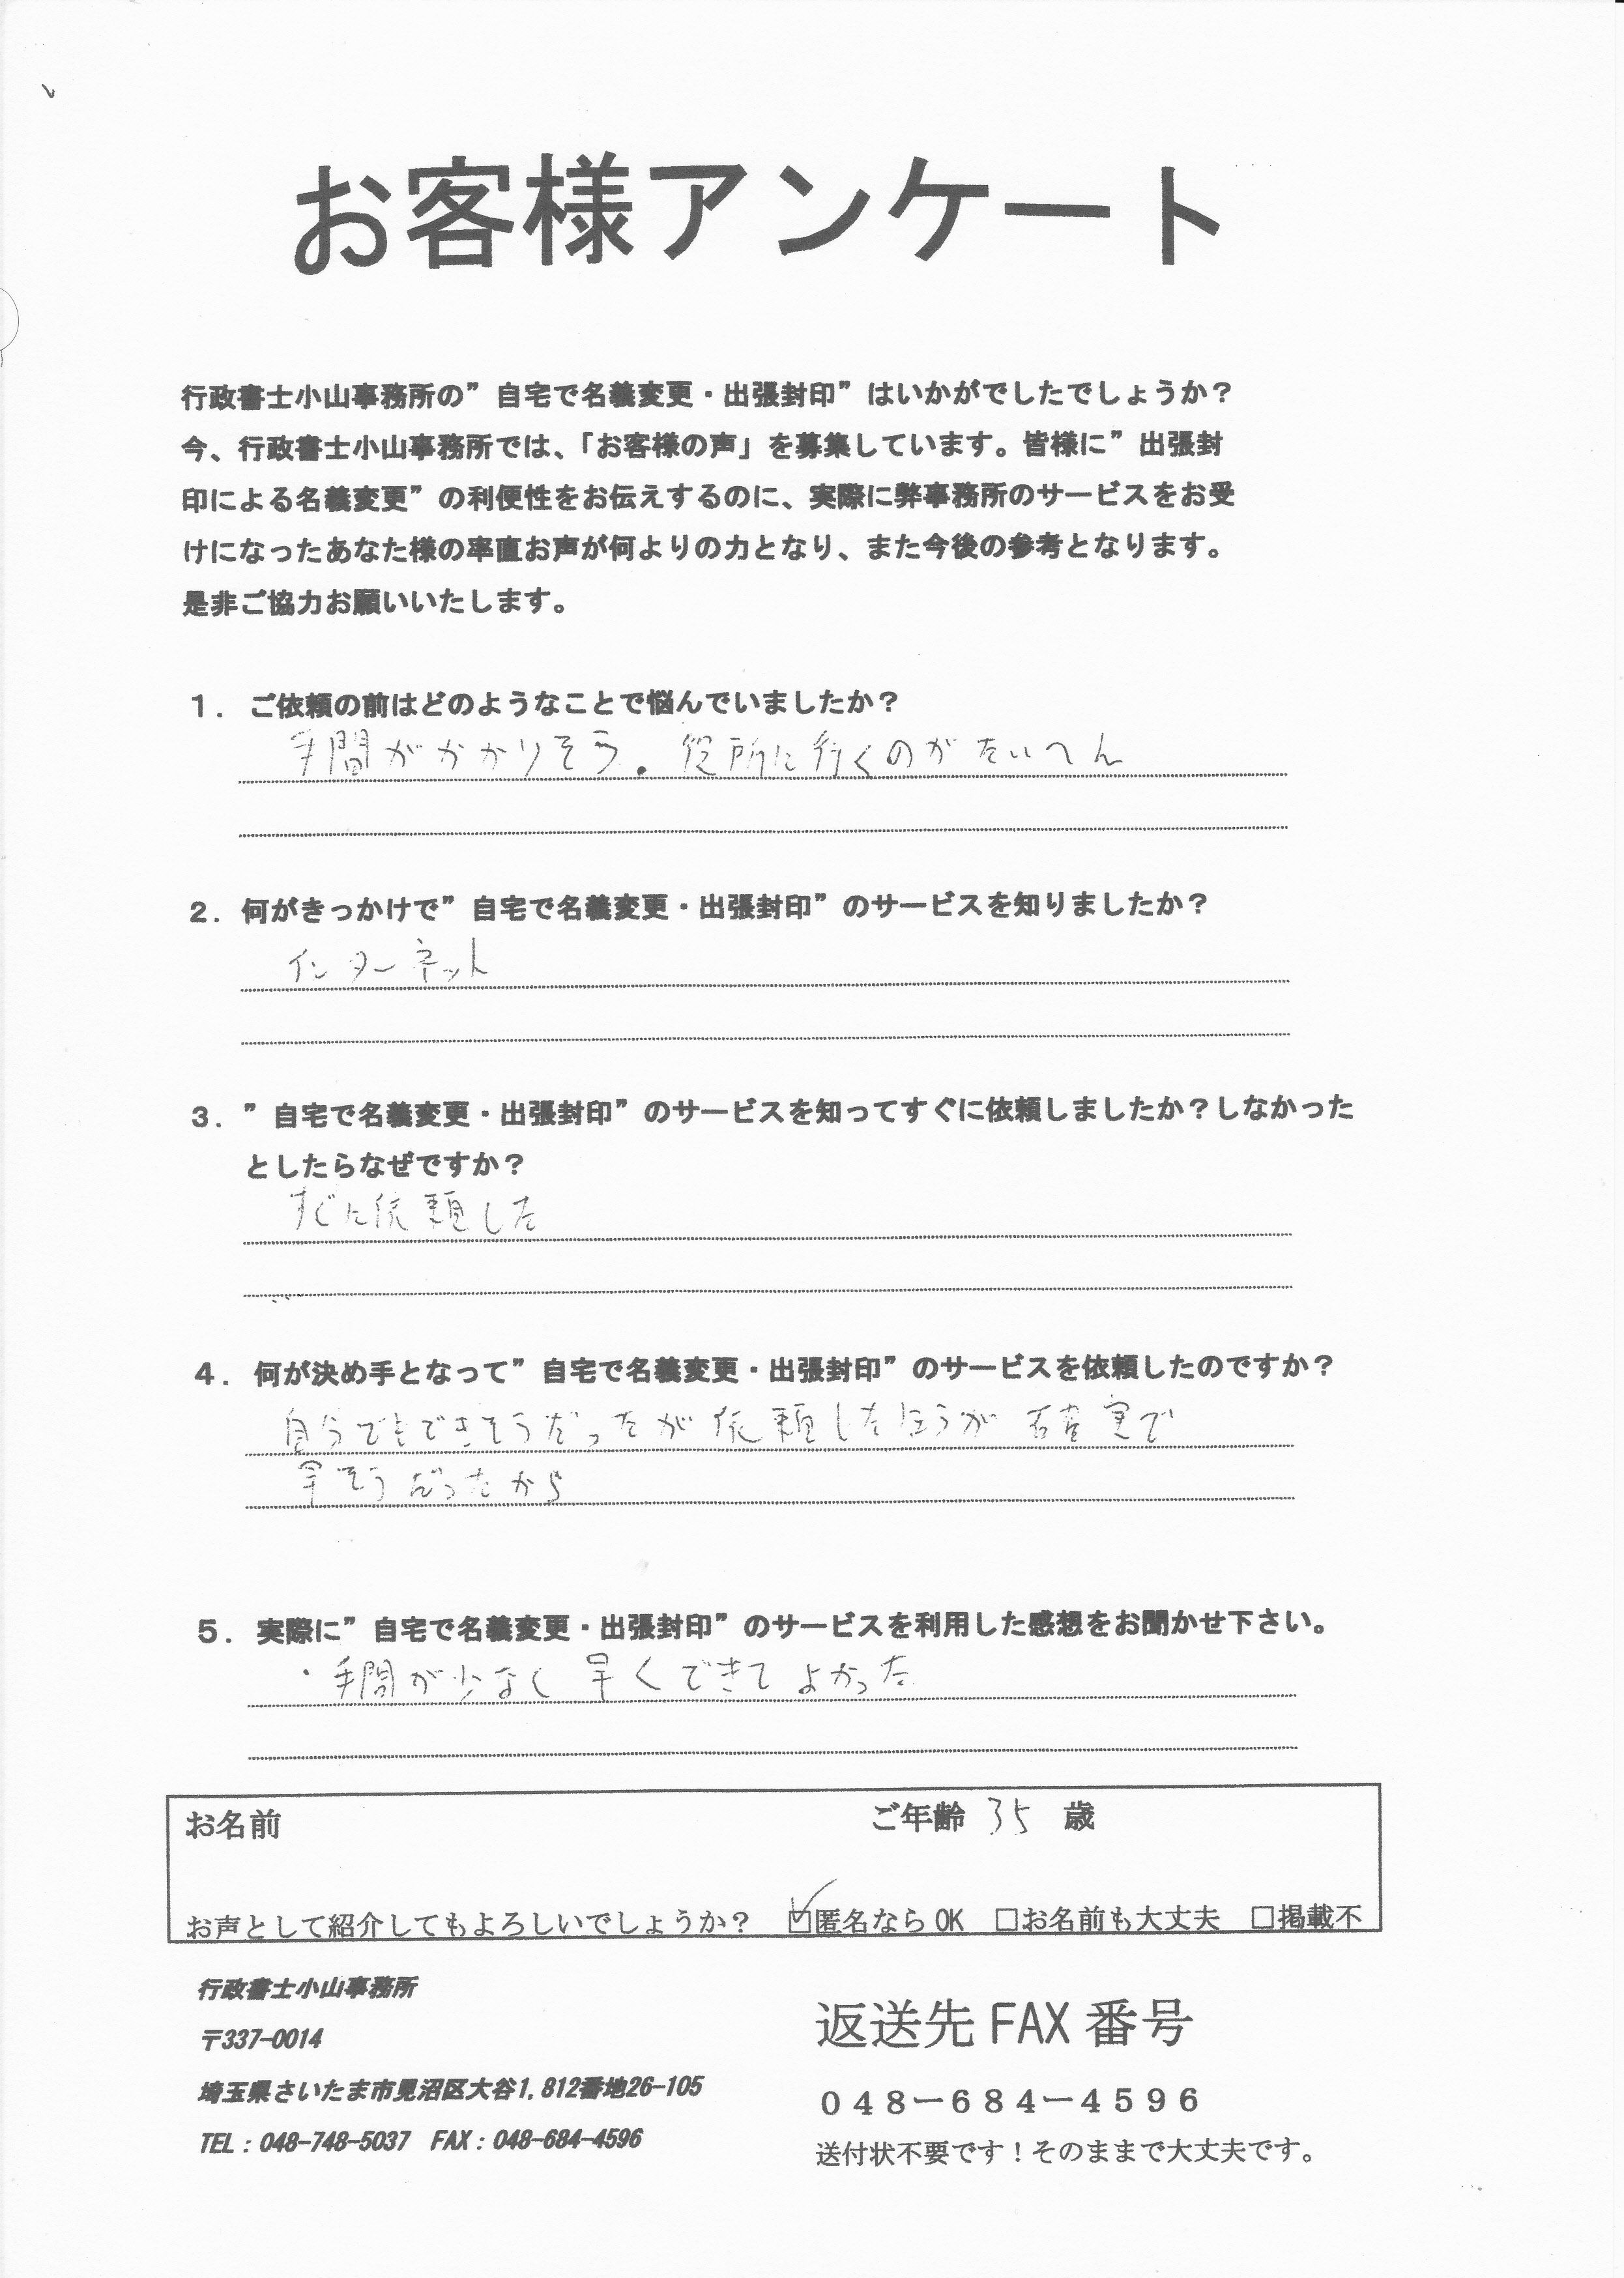 お客様アンケート
行政書士小山事務所の”自宅で名義変更・出張封印”はいかがでしたでしょうか？
今、行政書士小山事務所では、「お客様の声」を募集しています。皆様に”出張封
印による名義変更”の利便性をお伝えするのに、実際に弊事務所のサービスをお受
けになったあなた様の率直お声が何よりの力となり、また今後の参考となります。
是非ご協力お願いいたします。
１．ご依頼の前はどのようなことで悩んでいましたか？
手間がかかりそう。役所に行くのがたいへん
２．何がきっかけで”自宅で名義変更・出張封印”のサービスを知りましたか？
インターネット
３．”自宅で名義変更・出張封印”のサービスを知ってすぐに依頼しましたか？しなかった
としたらなぜですか？
すぐに依頼した
４．何が決め手となって”自宅で名義変更・出張封印”のサービスを依頼したのですか？
自分でもできそうだったが依頼したほうが確実で
早そうだったから
５．実際に”自宅で名義変更・出張封印”のサービスを利用した感想をお聞かせ下さい。
・手間が少なく早くできてよかった
お名前 ご年齢 35 歳
お声として紹介してもよろしいでしょうか？ ☑匿名なら OK □お名前も大丈夫 □掲載不
行政書士小山事務所
〒337-0014
埼玉県さいたま市見沼区大谷1,812番地26-105
TEL：048-748-5037 FAX：048-684-4596
返送先 FAX 番号
０４８－６８４－４５９６
送付状不要です！そのままで大丈夫です。